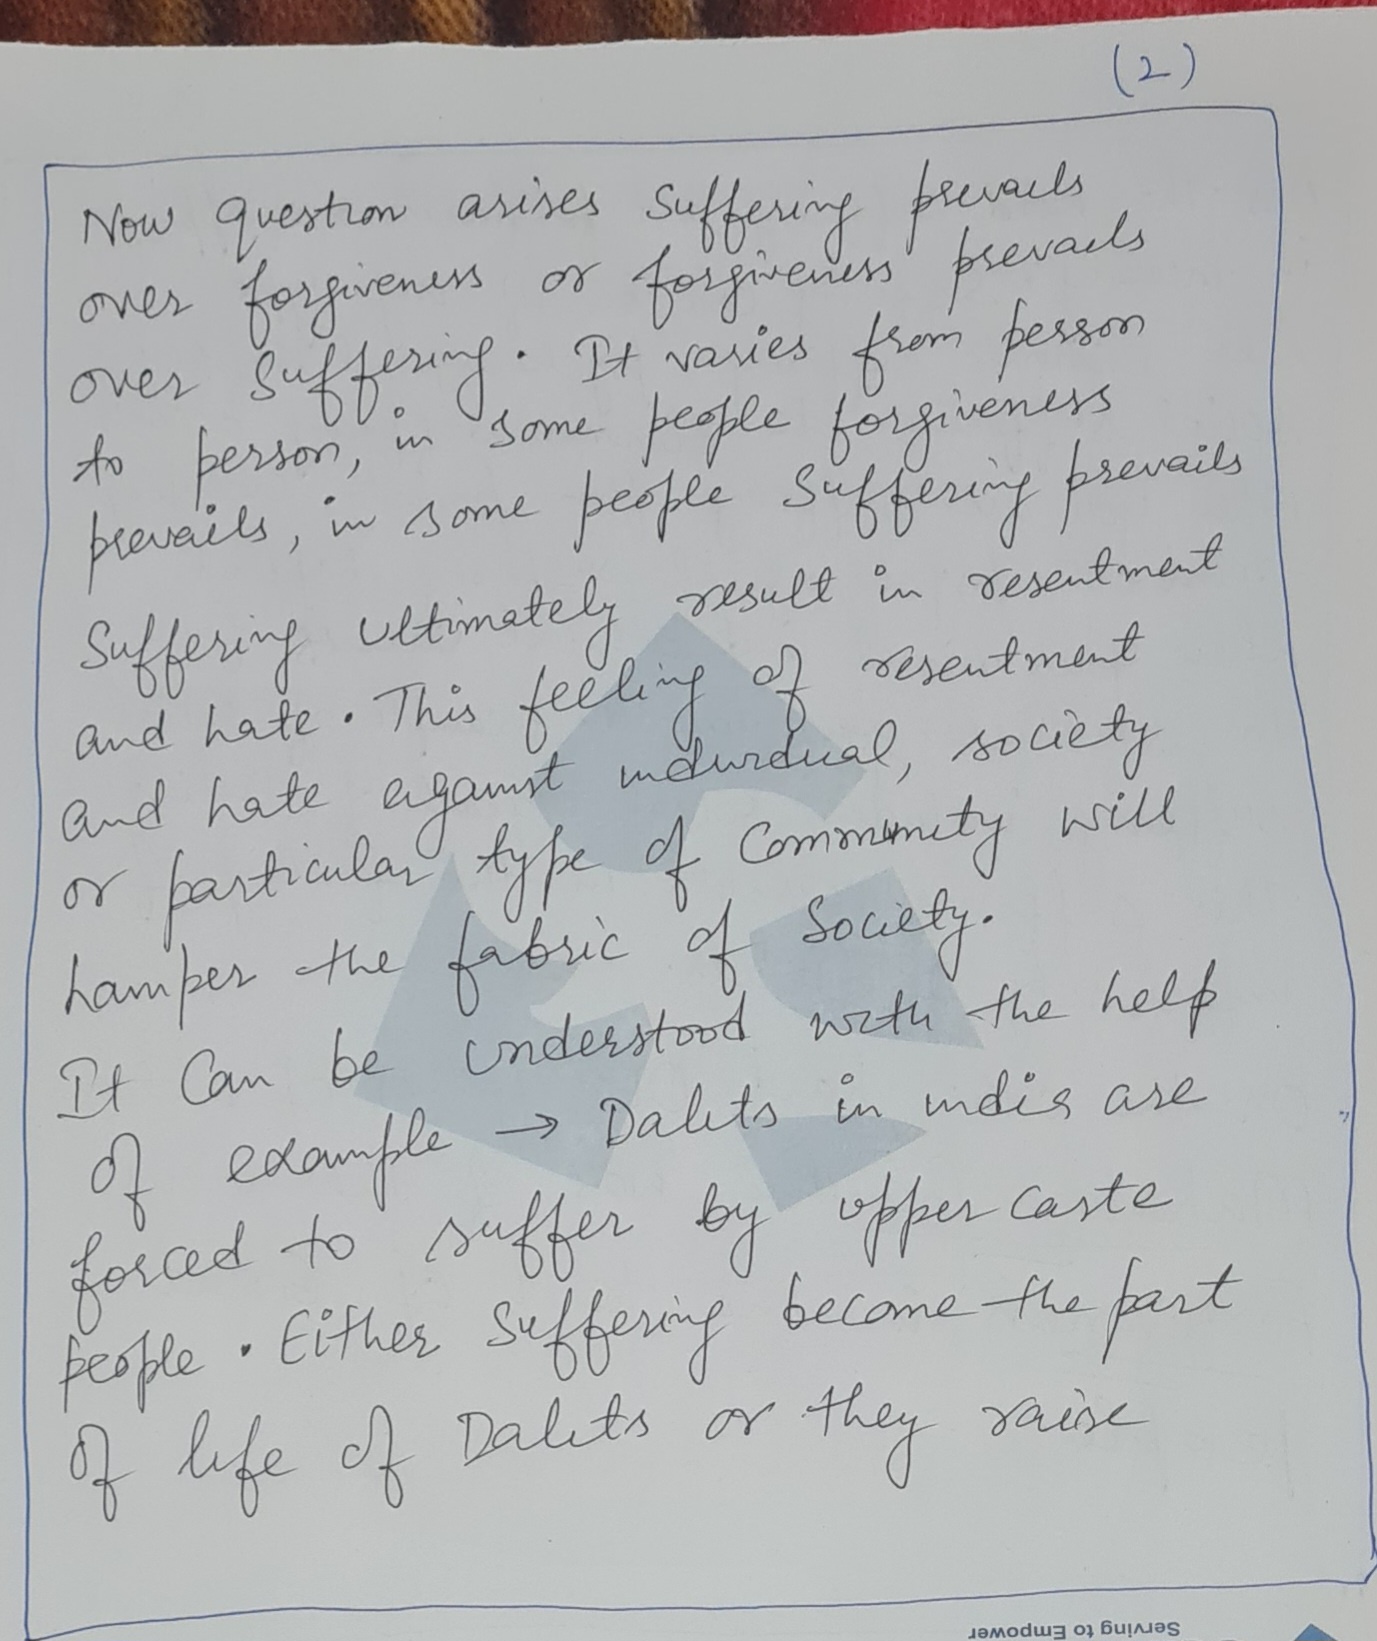 (2)
Now question arises suffering prevails
over forgiveness or forgiveness prevails
over suffering. It varies from person
to person, in some people forgiveness
prevails, in some people suffering prevails
Suffering ultimately result in resentment
and hate. This feeling of resentment
and hate against individual, society
or particular type of community will
hamper the fabric of society.
It can be understood with the help
of example → Dalits in india are
forced to suffer by upper caste
people. Either suffering become the part
of life of Dalits or they raise
Serving to Empower